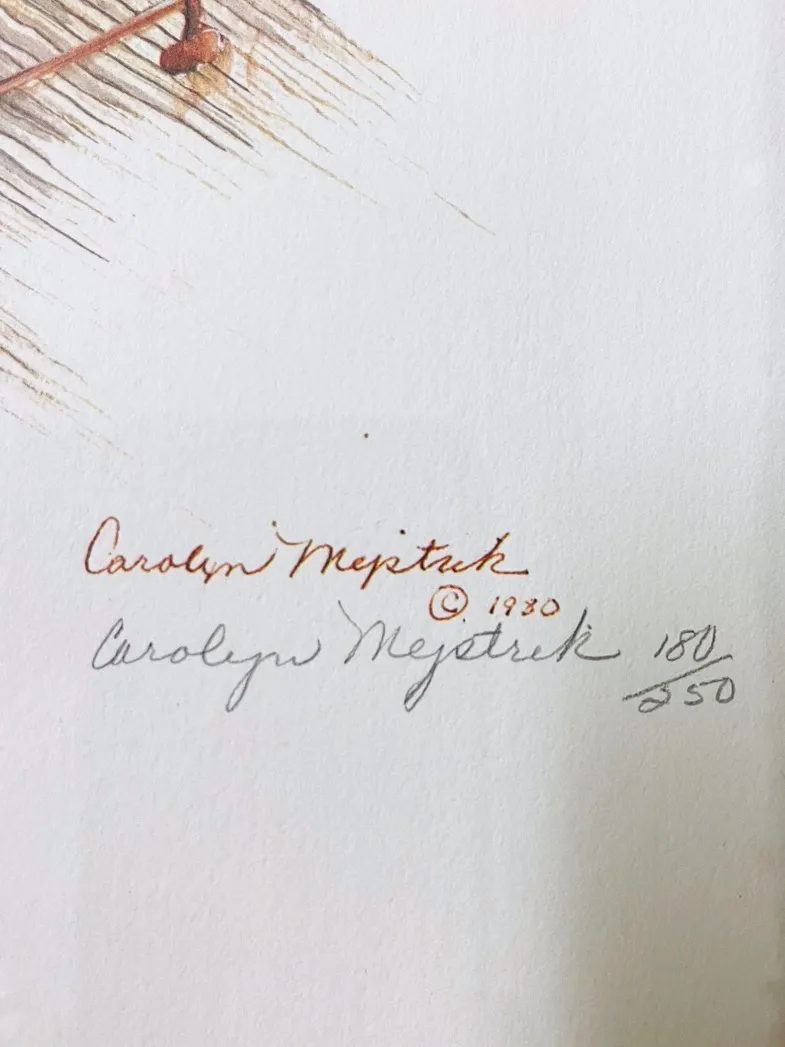 Carolyn Mejstrik
© 1980
Carolyn Mejstrik 180/250